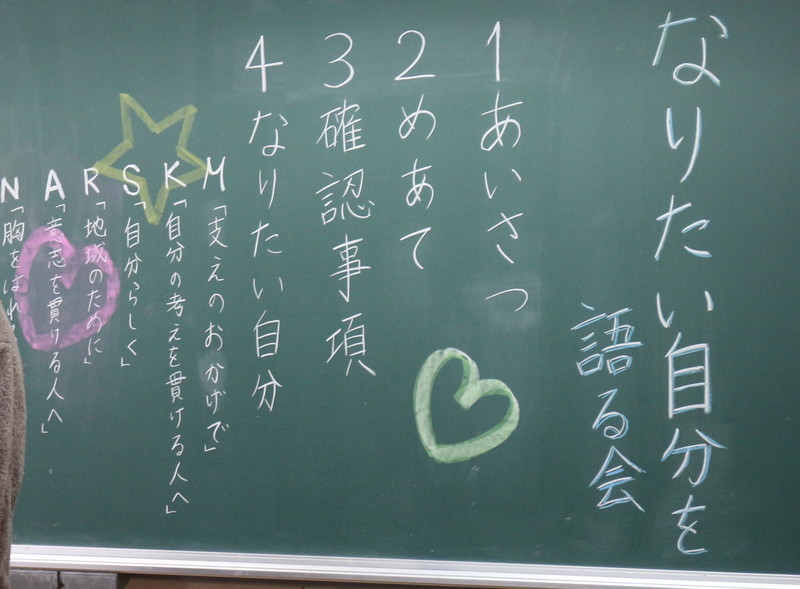 なりたい自分を
語る会
1あいさつ
2めあて
3確認事項
4なりたい自分
M「支えのおかげで」
K「自分の考えを貫ける人へ」
S「自分らしく」
R「地域のために」
A「意志を貫ける人へ」
N「胸をはれ